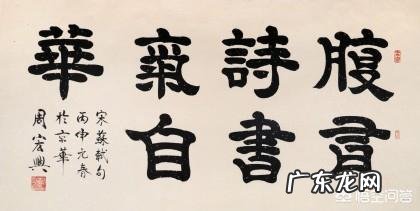 腹有
詩書
氣自
華
宋蘇軾句
丙申元春
於京華
周宏興
广东龙网
悟空问答